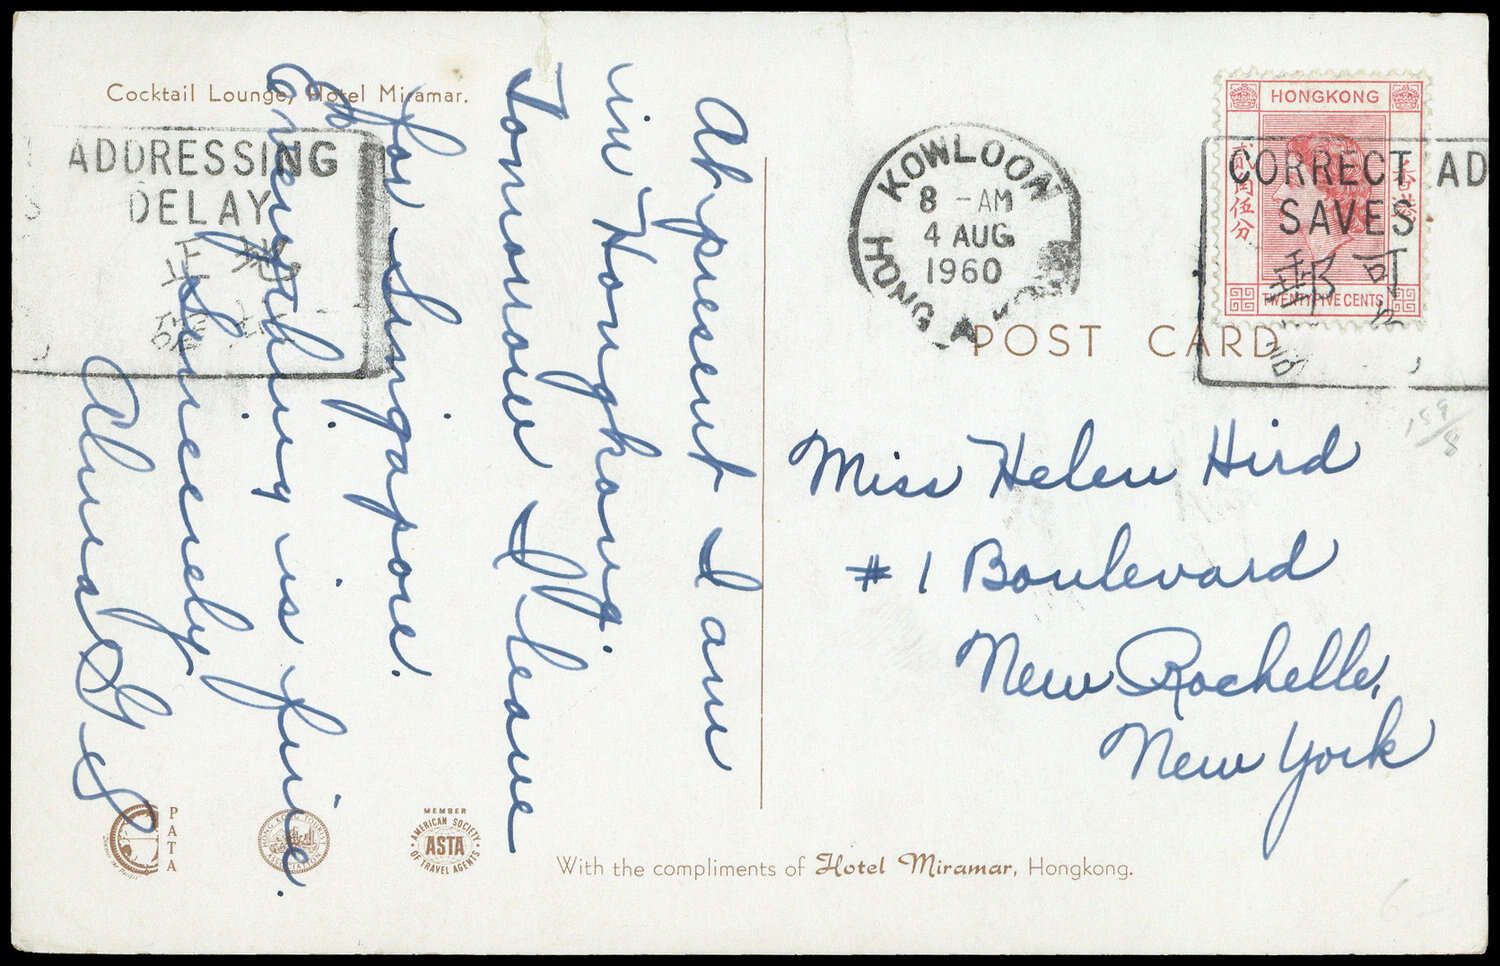 Cocktail Lounge, Hotel Miramar.
ADDRESSING
DELAY
At present I am
in Hongkong.
Tomorrow I leave
for Singapore.
Everything is fine.
Sincerely
KOWLOON
8 - AM
4 AUG
1960
HONG KONG
HONGKONG
香港
貳角伍分
TWENTY FIVE CENTS
CORRECT AD
SAVES
POST CARD
Miss Helen Hird
# 1 Boulevard
New Rochelle,
New York
159/8
PATA
MEMBER
AMERICAN SOCIETY
ASTA
OF TRAVEL AGENTS
With the compliments of Hotel Miramar, Hongkong.